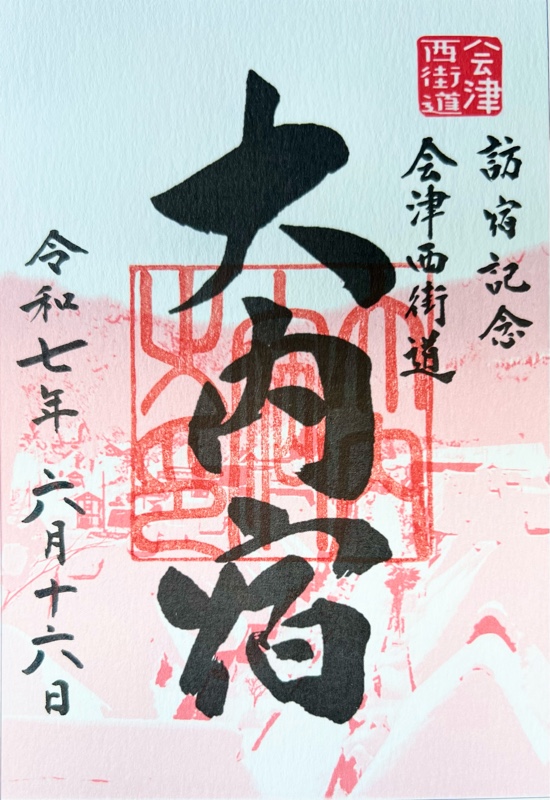 会津
西街道
訪宿記念
会津西街道
大内宿
令和七年 六月十六日